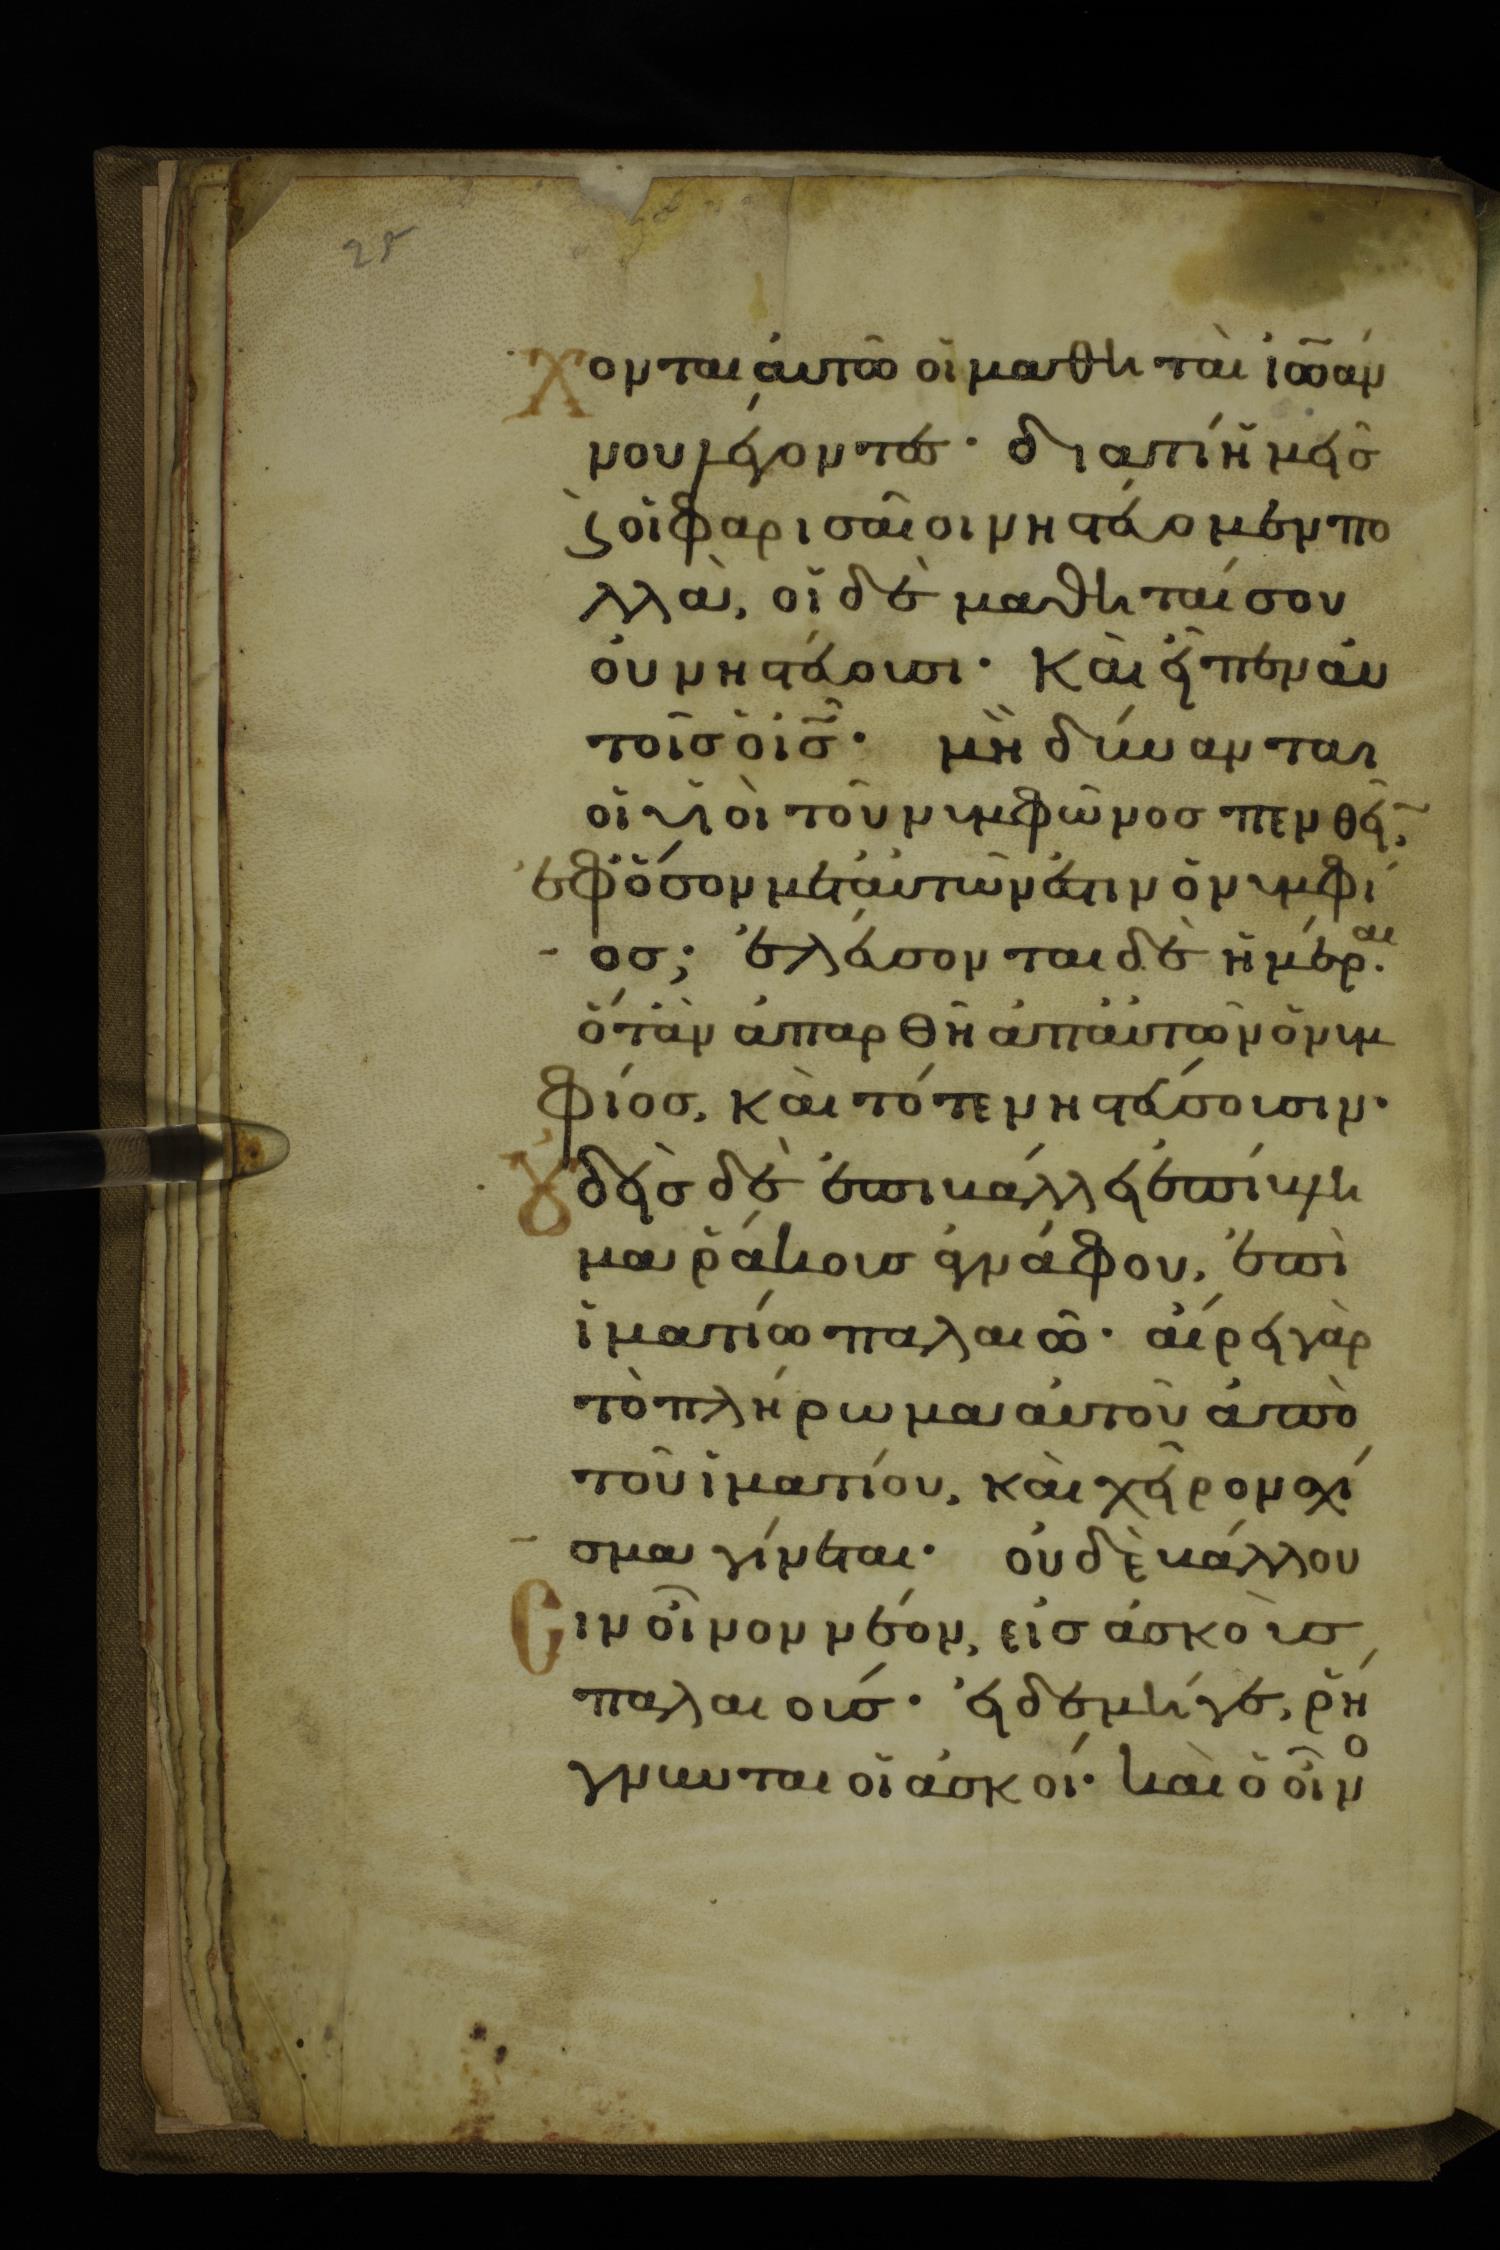 25
χονται αὐτῶ οἱ μαθηταὶ ἰωάν
νου λέγοντες· διατί ἡμεῖσ
ϗ οἱ φαρισαῖοι νηστεύομεν πο
λλά, οἱ δὲ μαθηταί σου
οὐ νηστεύουσι· Καὶ εἶπεν αὐ
τοῖσ ὁ ἰ̅σ̅· μὴ δύνανται
οἱ υἱοὶ τοῦ νυμφῶνοσ πενθεῖ,
ἐφ ὅσον μετ αὐτῶν ἐστιν ὁ νυμφί
οσ; ἐλεύσονται δὲ ἡμέραι·
ὅταν ἀπαρθῆ ἀπ αὐτῶν ὁ νυμ
φίοσ, καὶ τότε νηστεύσουσιν·
Οὐδεὶσ δὲ ἐπιβάλλει ἐπίβλη
μα ῥάκουσ ἀγνάφου, ἐπὶ
ἱματίω παλαιῶ· αἴρει γὰρ
τὸ πλήρωμα αὐτοῦ ἀπὸ
τοῦ ἱματίου, καὶ χεῖρον σχί
σμα γίνεται· οὐδὲ βάλλου
Σιν οἶνον νέον, εἰσ ἀσκοὺσ
παλαιούσ· εἰ δὲ μήγε, ῥή
γνυνται οἱ ἀσκοί· καὶ ὁ οἶνο